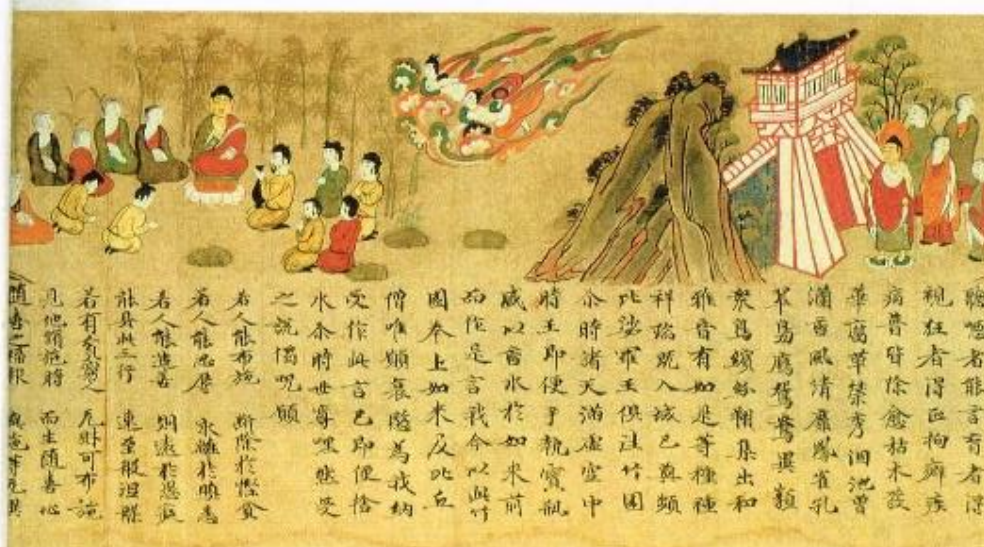 聽瘂者能言盲者得
視狂者得正拘癖疾
病普皆除愈枯木發
華腐草榮秀涸池曾
瀾香風清靡鳳雀孔
翠鳧鴈鴛鴦異類
衆鳥繽紛翔集出和
雅音有如是等種種
祥瑞既入城已與頻
毗娑羅王俱往竹園
尒時諸天滿虛空中
時王即便手執寶瓶
盛以香水於如来前
而作是言我今以此竹
園奉上如来及比丘
僧唯願哀愍為我納
受作此言已即便捨
水尒時世尊嘿然受
之說偈呪願
若人能布施 斷除於慳貪
若人能忍辱 永離於瞋恚
若人能造善 則遠於愚癡
能具此三行 速至般涅槃
若有貧窮人 无財可布施
見他脩施時 而生随喜心
随喜之福報 與施等无異